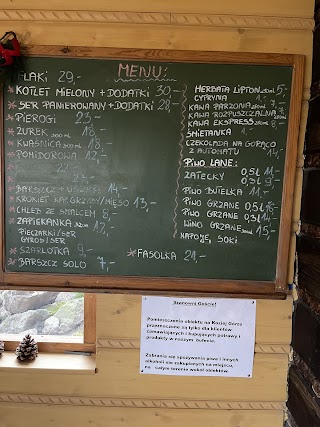 MENU:
FLAKI 29,-
KOTLET MIELONY + DODATKI 30,-
SER PANIEROWANY + DODATKI 28,-
PIEROGI 23,-
ŻUREK 18,-
KWAŚNICA 18,-
POMIDOROWA 12,-
BARSZCZ + USZKA 14,-
KROKIET KAP. GRZYBY/MIĘSO 13,-
CHLEB ZE SMALCEM 8,-
ZAPIEKANKA 12,-
PIECZARKI/SER
GYROS/SER
SZARLOTKA 9,-
BARSZCZ SOLO 7,-
FASOLKA 21,-
HERBATA LIPTON 5,-
CYTRYNA 1,-
KAWA PARZONA 7,-
KAWA ROZPUSZCZALNA
KAWA EKSPRESS 8,-
ŚMIETANKA 1,-
CZEKOLADA NA GORĄCO
Z AUTOMATU 14,-
PIWO LANE:
ŻATECKY 0,5l
0,3l 9,-
PIWO BUTELKA 11,-
PIWO GRZANE 0,5l
PIWO GRZANE 0,3l
WINO GRZANE 15,-
NAPOJE, SOKI
Szanowni Goście!
Pomieszczenia obiektu na Koziej Górze
przeznaczone są tylko dla klientów
zamawiających i kupujących potrawy i
produkty w naszym bufecie.
Zabrania się spożywania piwa i innych
alkoholi nie zakupionych na miejscu,
na całym terenie wokół obiektów.